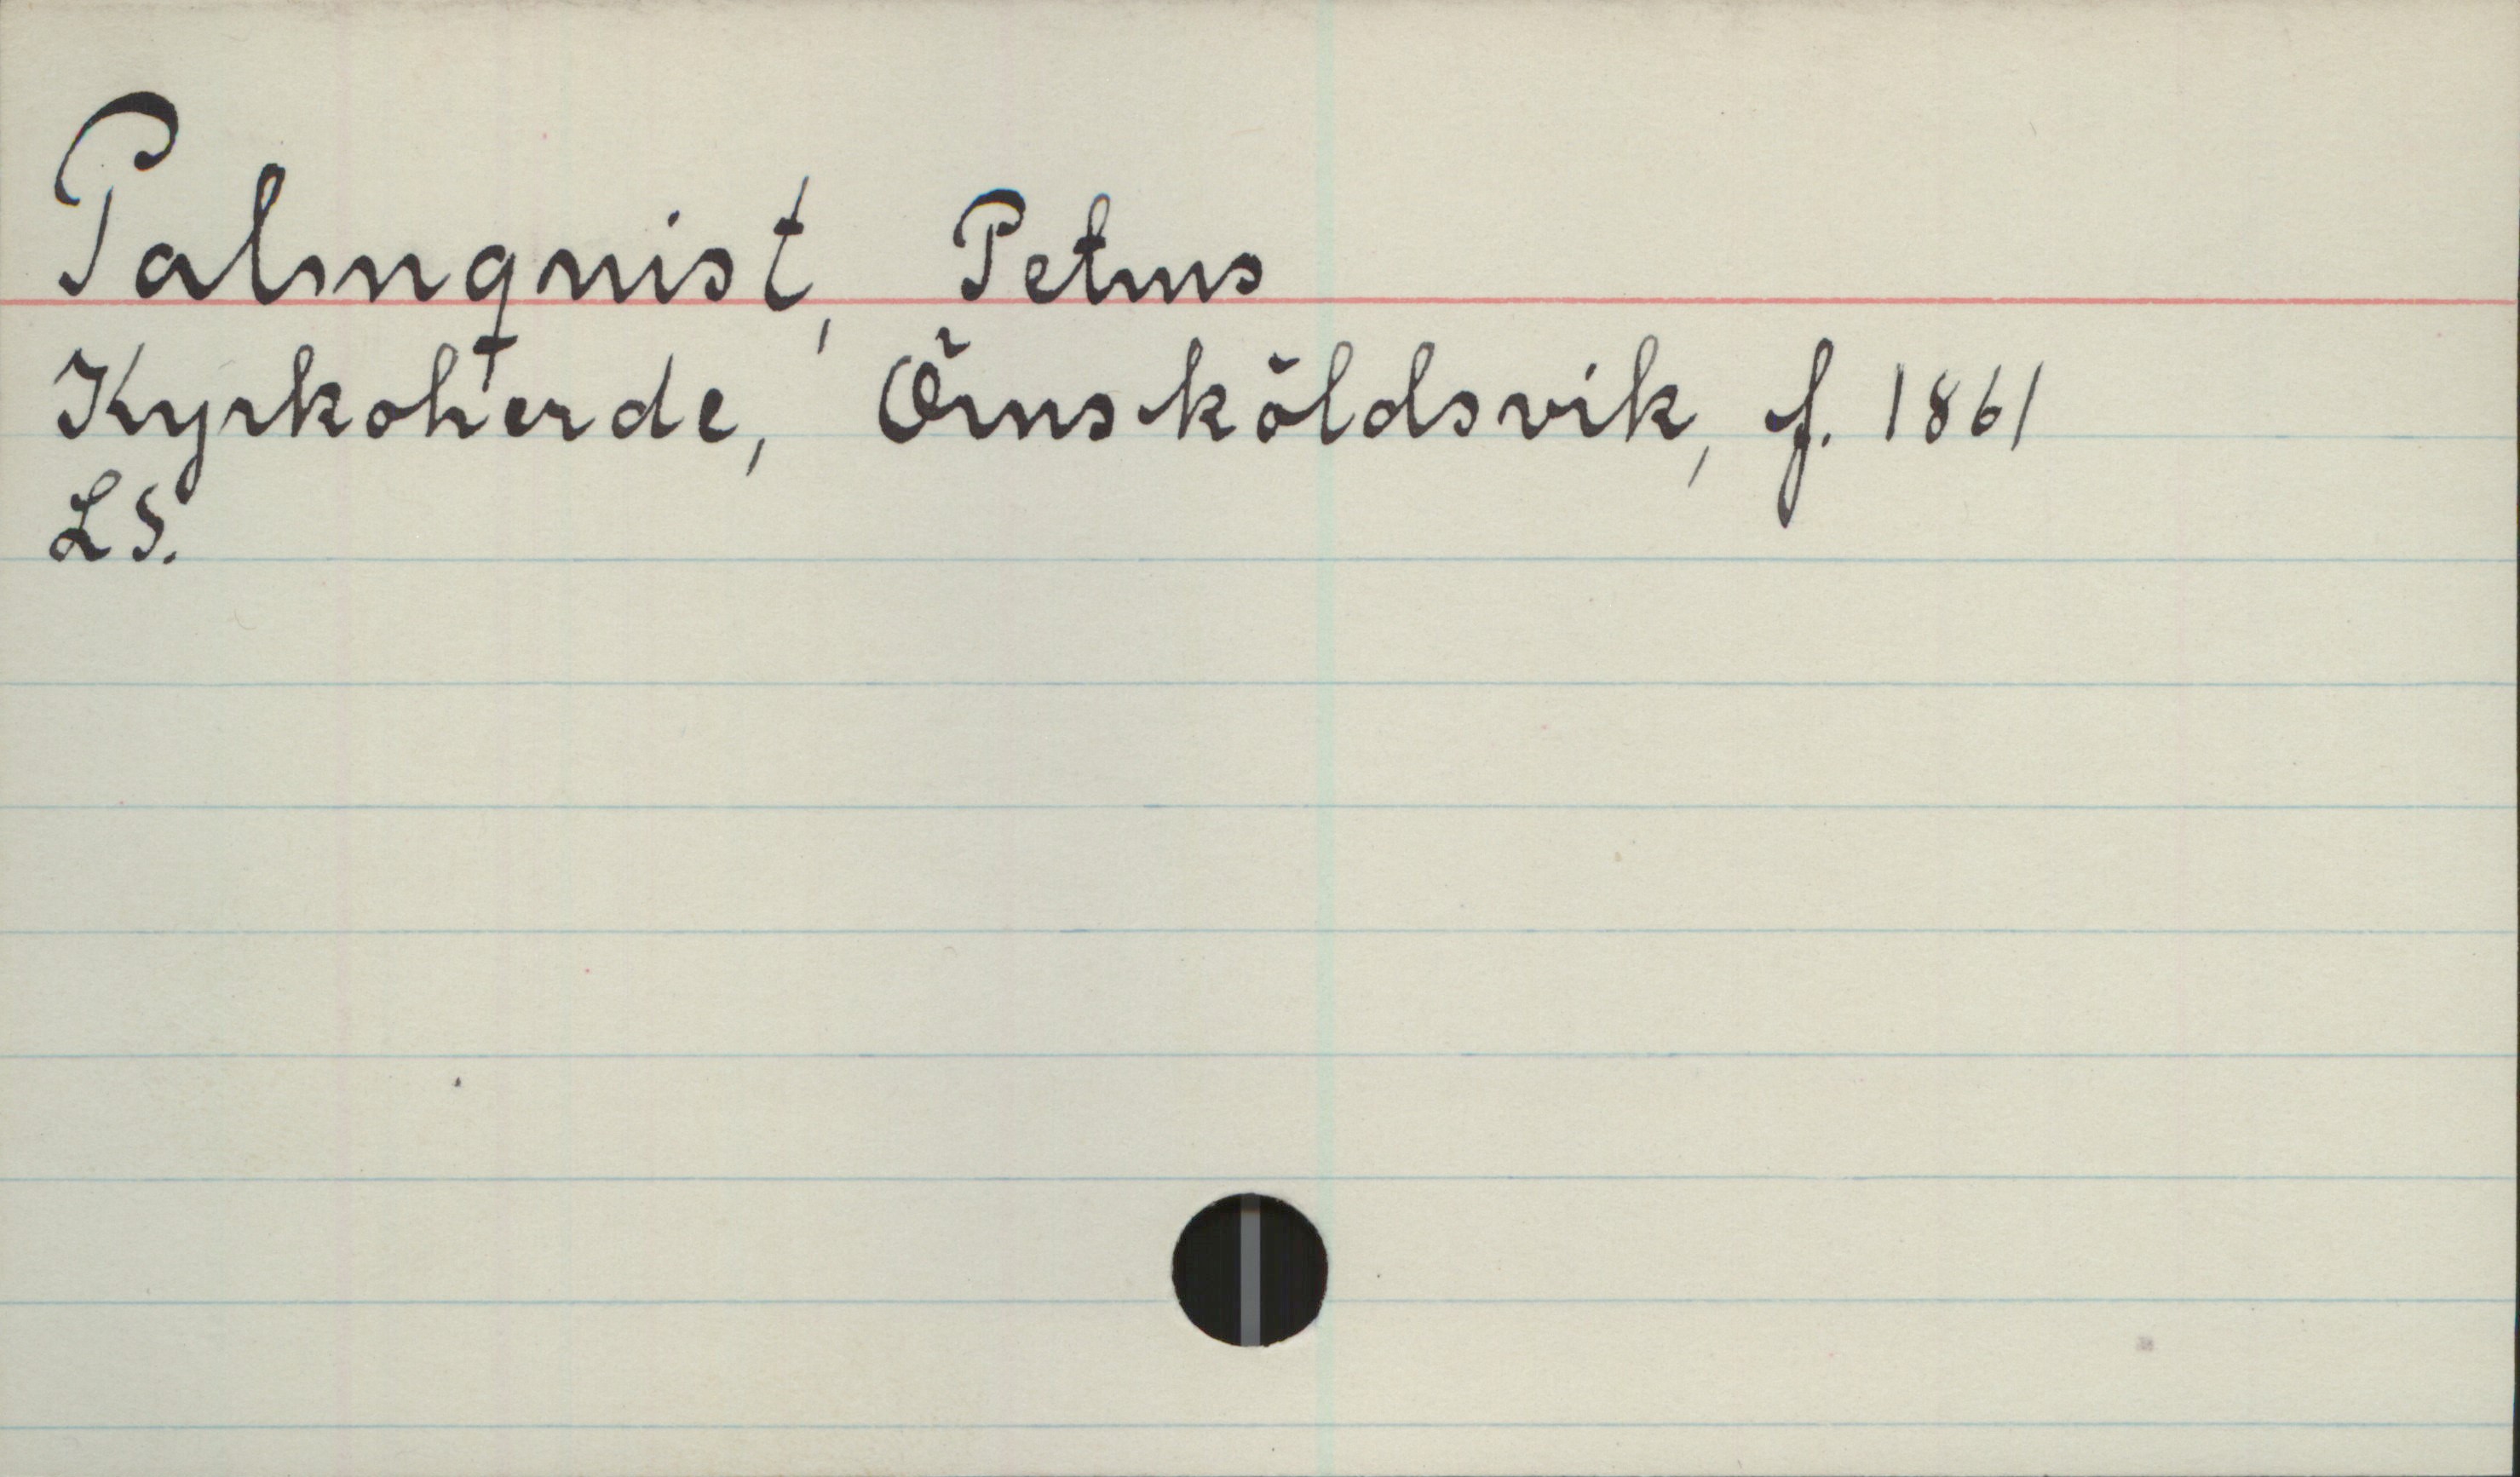 Palmquist, Petrus
Kyrkoherde, Örnsköldsvik, f. 1861
LS.